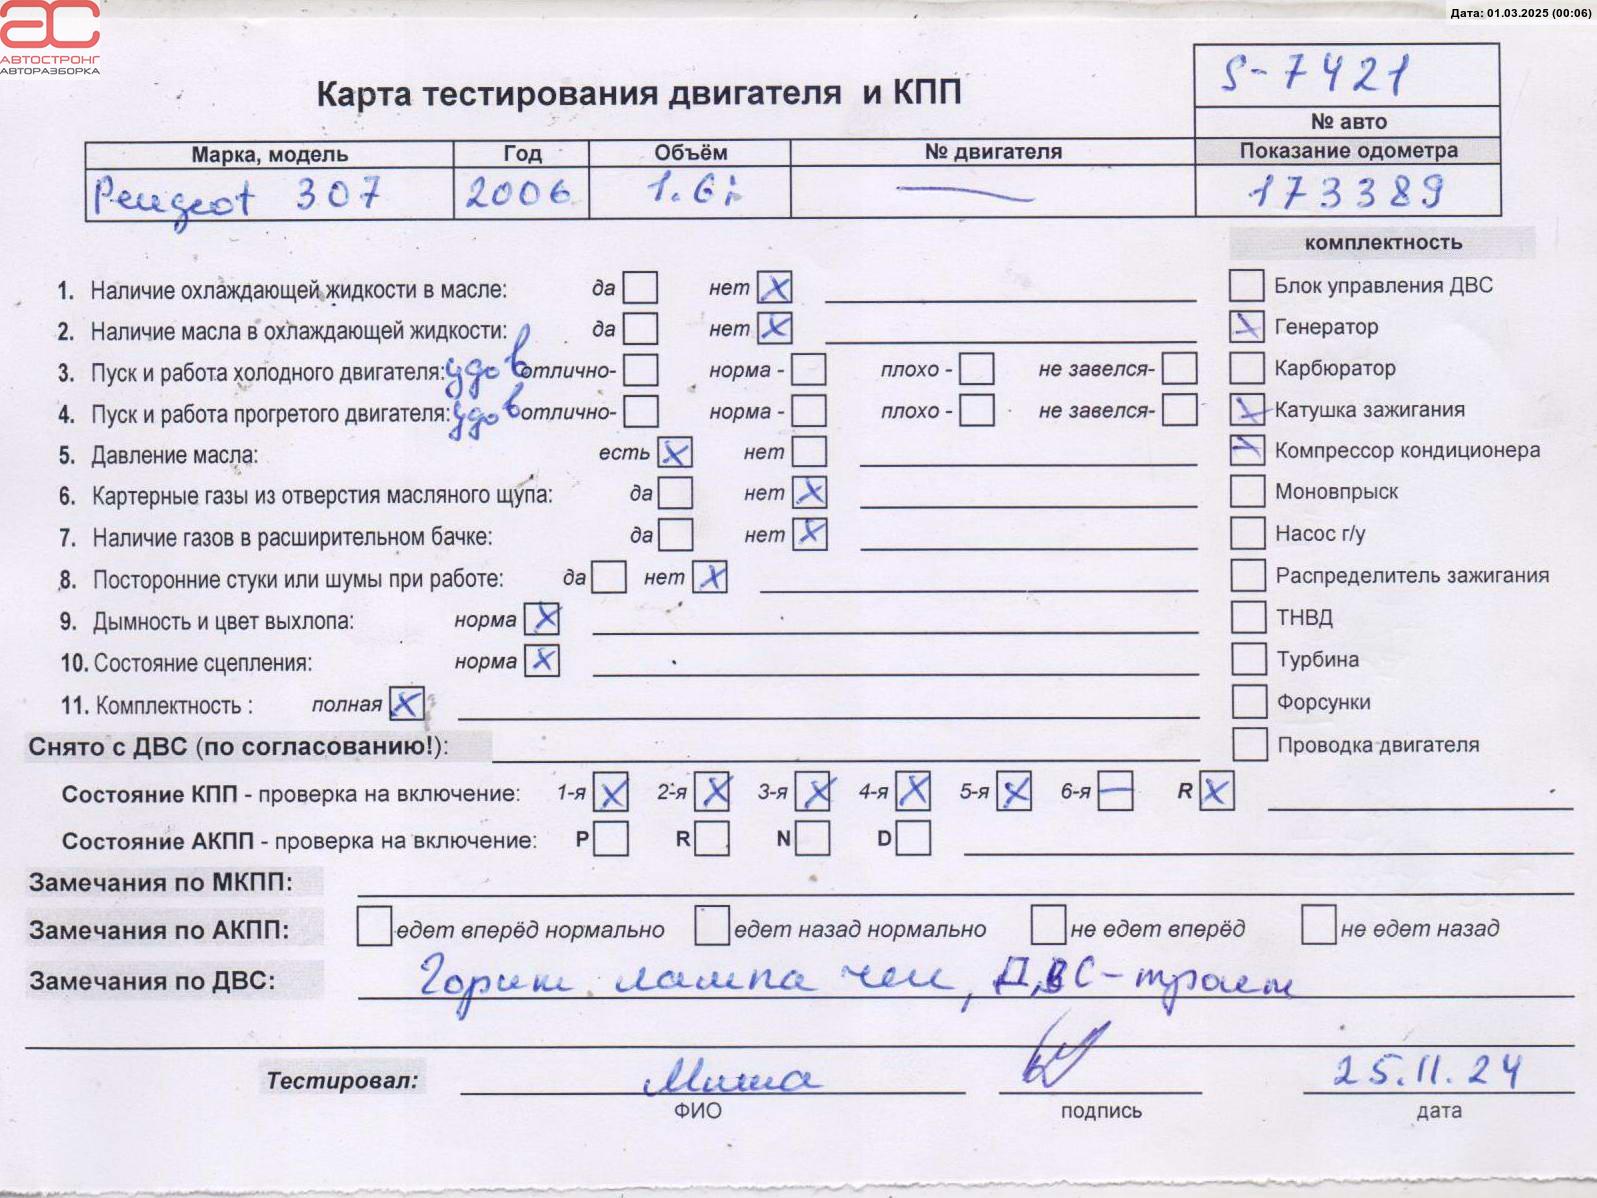 АВТОСТРОНГ
АВТОРАЗБОРКА
Дата: 01.03.2025 (00:06)
Карта тестирования двигателя и КПП
S-7421
№ авто
Марка, модель Год Объём № двигателя Показание одометра
Peugeot 307 2006 1.6i — 173389
комплектность
1. Наличие охлаждающей жидкости в масле: да нет X
Блок управления ДВС
2. Наличие масла в охлаждающей жидкости: да нет X
X Генератор
3. Пуск и работа холодного двигателя: удов отлично- норма - плохо - не завелся-
Карбюратор
4. Пуск и работа прогретого двигателя: удов отлично- норма - плохо - не завелся-
X Катушка зажигания
5. Давление масла: есть X нет
X Компрессор кондиционера
6. Картерные газы из отверстия масляного щупа: да нет X
Моновпрыск
7. Наличие газов в расширительном бачке: да нет X
Насос г/у
8. Посторонние стуки или шумы при работе: да нет X
Распределитель зажигания
9. Дымность и цвет выхлопа: норма X
ТНВД
10. Состояние сцепления: норма X
Турбина
11. Комплектность : полная X
Форсунки
Снято с ДВС (по согласованию!):
Проводка двигателя
Состояние КПП - проверка на включение: 1-я X 2-я X 3-я X 4-я X 5-я X 6-я — R X
Состояние АКПП - проверка на включение: P R N D
Замечания по МКПП:
Замечания по АКПП: едет вперёд нормально едет назад нормально не едет вперёд не едет назад
Замечания по ДВС: Горит лампа чек, ДВС-троит
Тестировал: Миша 25.11.24
ФИО подпись дата